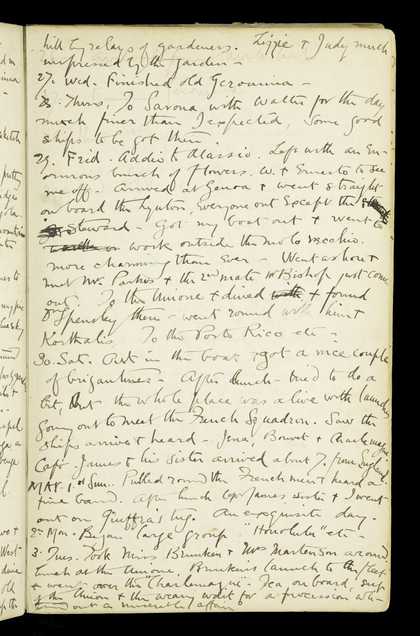 hill by relays of gardeners. Lizzie & Judy much
impressed by the garden -
27. Wed. Finished old Geronima -
28. Thurs. To Savona with Walter for the day
much finer than I expected. Some good
ships to be got there.
29. Frid. Addio to Alassio. Left with an En-
ormous bunch of flowers. W. & Ernesto to see
me off. Arrived at Genoa & went straight
on board the. Everyone out Except the
Steward - Got my boat out & went to
work outside the molo vecchio.
more charming than Ever - Went ashore &
met Mr. Parkes & the 2nd mate Mr Bishop just come
out. To the Unione & dined & found
Dr Spensley there - went round with him &
To the Porto Rico etc -
30. Sat. Out in the boat & got a nice couple
of brigantines - After lunch - tried to do a
bit, but the whole place was alive with launches
going out to meet the French Squadron. Saw the
ships arrive & heard - Jena, Bouvet & Charlemagne
Capt. James & his sister arrived about 7. from England.
MAY 1st Sun. Pulled round the French men & heard a
fine band. After lunch Capt James sister & I went
out on tug. An exquisite day.
2. Mon. Began large group "Honolulu" etc -
3. Tues. Took Miss & Mrs Martenson around
lunch at the Unione. launch to the fleet
& went over the Charlemagne. Tea on board, sup
at the Union & the weary wait for a procession wh.
turned out a miserable affair